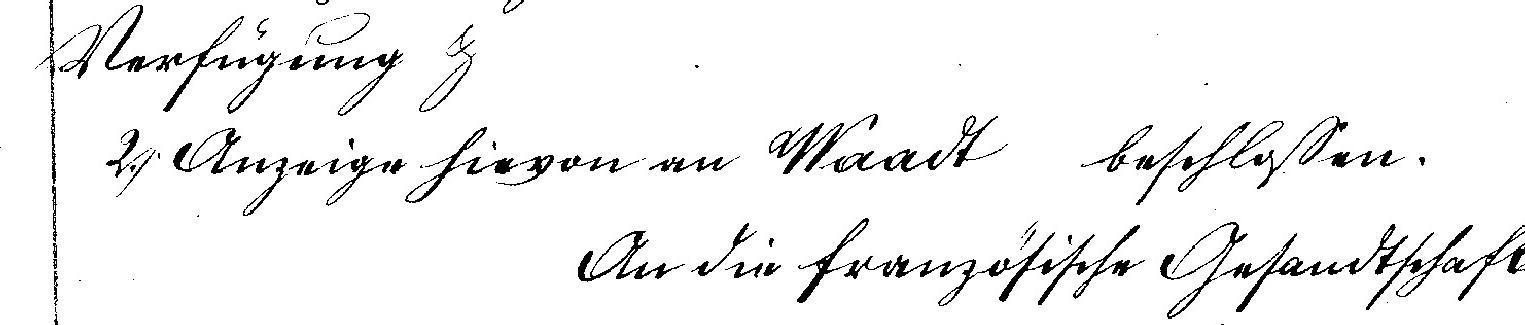 Verfügung &
2) Anzeige hievon an Waadt beschlossen.
An die französische Gesandtschaft